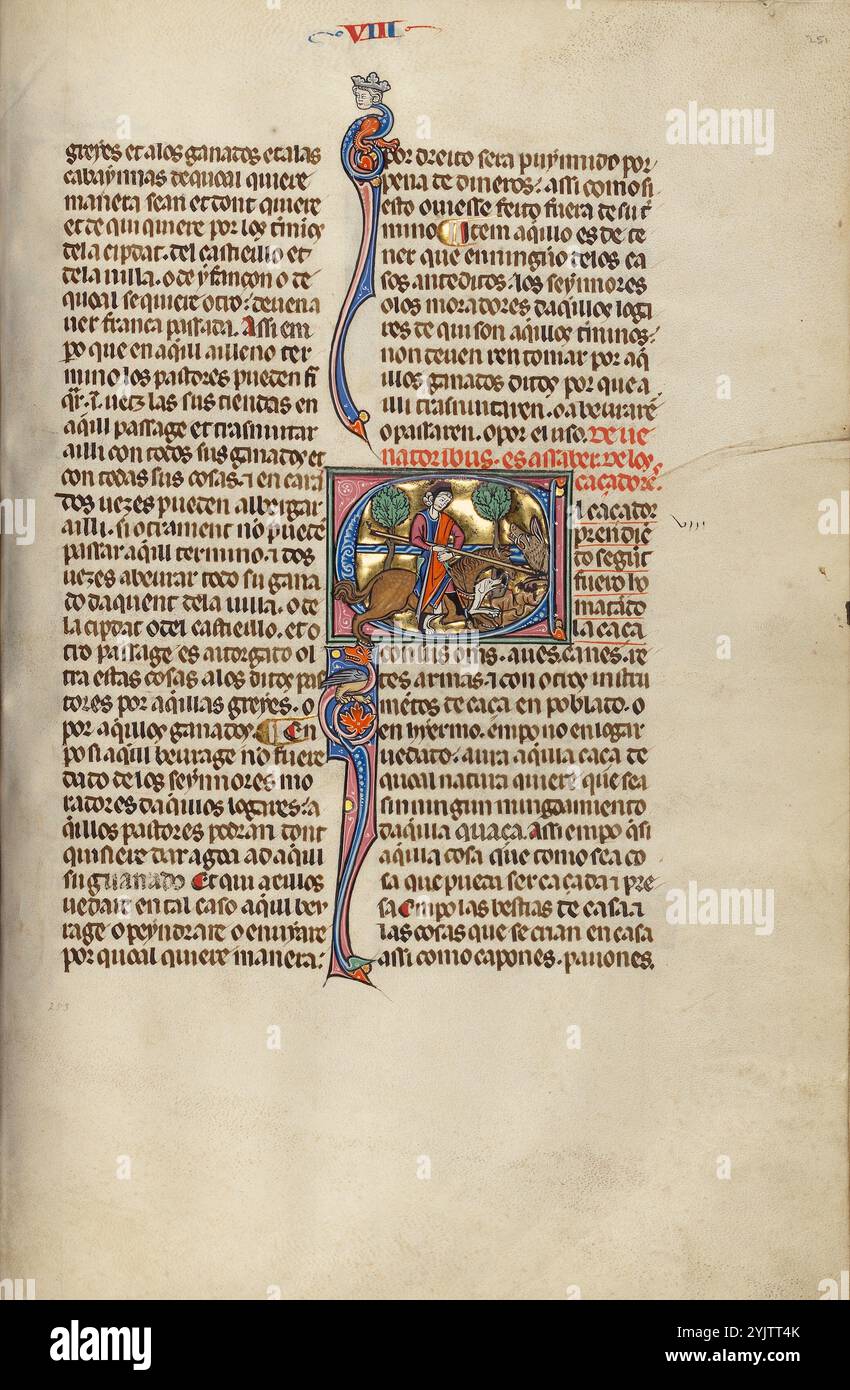 VIII
251
greyes et a los ganados et a las
cabaynnas de qual quiere
manera sean et dont quiere
et de qui quiere por los t̃minos
dela cipdat. del castieillo et
dela uilla. o de yfançon o de
qual se quiere otro: deuena
uer franca passada. Assi em
po que en aq̃ill ailleno ter
mino los pastores pueden fi
las sus tiendas en
aq̃ill passage et trasnuitar
ailli con todos sus ganados et
con todas sus cosas. ⁊ en cara
dos uezes pueden albergar
ailli. si otrament nõ puedẽ
passar aq̃ill termino. ⁊ dos
uezes abeurar todo su gana
do daquent dela uilla. o de
la cipdat o del castieillo. et o
tro passage es atorgado ol
tra estas cosas a los ditos pas
tores por aq̃illas greyes. o
por aq̃illos ganados. En
po si aq̃ill beurage nõ fuere
dado de los seynnores mo
radores daq̃illos logares: a
q̃illos pastores podran dont
quisiere dar agoa ad aq̃ill
su guanado Et qui a eillos
uedare en tal caso aq̃ill beu
rage o peyndrare o enuyare
por qual quiere manera:
por dreito sera puynnido por
pena de dineros: assi como si
esto ouiesse feito fuera de su t̃
mino Item aq̃llo es de te
ner que en ningũo de los ca
sos anteditos. los seynnores
o los moradores daq̃illos loga
res de qui son aq̃illos t̃minos:
non deuen ren tomar por aq̃
illos ganados ditos por que a
illi trasnuitaren. o abeurarẽ
o passaren. o por el uso. De ue
natoribus. es assaber de los
caçadores.
El caçador
prendiẽ
do segũt
fuero ho
matãdo
la caça
VIII
con sus onis. aues. canes. re
des armas. ⁊ con otros instru
mẽtos de caça en poblado. o
en hyermo. empo no en logar
uedado. aura aq̃lla caça de
qual natura quiere que sea
sin ningun minguamiento
daq̃lla Assi empo q̃ si
aq̃lla cosa que como sea co
sa que pueda ser caçada ⁊ pre
sa Empo las bestias de casa. ⁊
las cosas que se crian en casa
assi como capones. pauones.
253
alamy
Image ID: 2YJTT4K
www.alamy.com